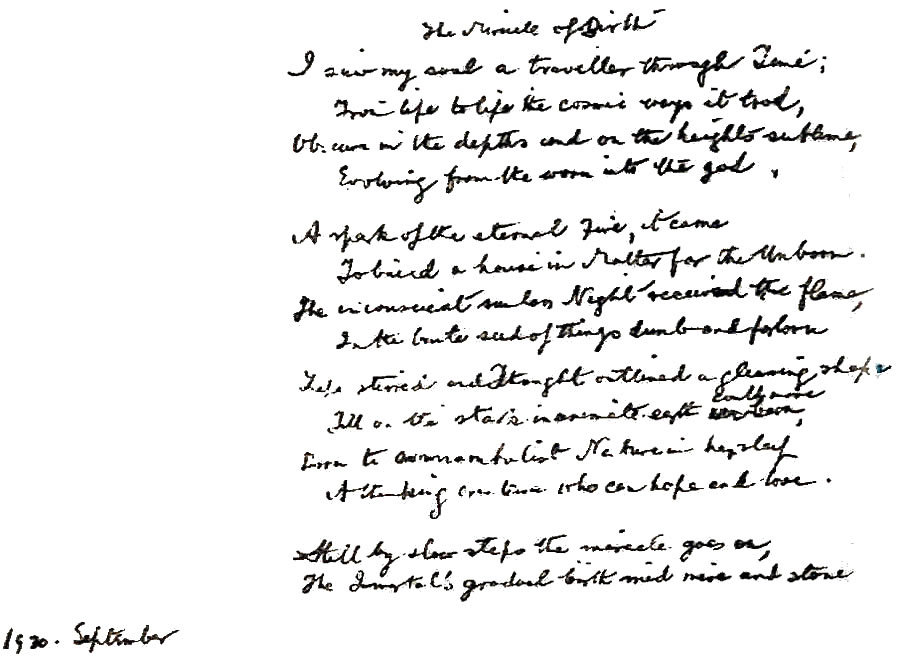 The Miracle of Birth
I saw my soul a traveller through Time;
From life to life the cosmic ways it trod,
Obscure in the depths and on the heights sublime,
Evolving from the worm into the god.
A spark of the eternal Fire, it came
To build a house in Matter for the Unborn.
The inconscient sunless Night received the flame,
In the brute seed of things dumb and forlorn
Life stirred and Thought outlined a gleaming shape
Till on the stark inanimate earth could move,
Born to somnambulist Nature in her sleep
A thinking creature who can hope and love.
Still by slow steps the miracle goes on,
The Immortal's gradual birth mid mire and stone
1930. September